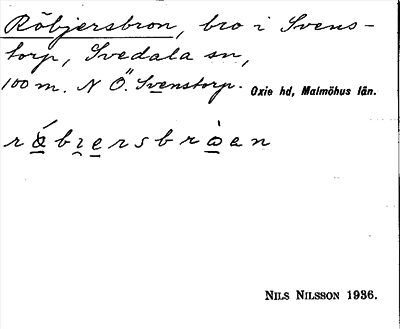 Röbjersbron, bro i Svens-
torp, Svedala sn,
100 m. N Ö. Svenstorp. Oxie hd, Malmöhus län.
rǿbı̯ersbròen
NILS NILSSON 1936.